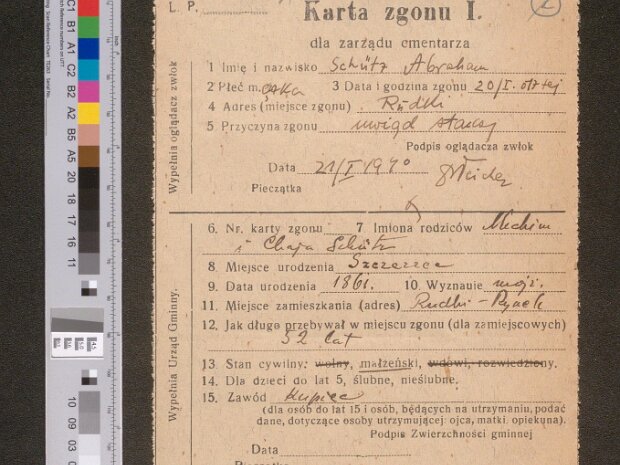 L. P.
Karta zgonu I.
2
dla zarządu cmentarza
1 Imię i nazwisko Schütz Abraham
2 Płeć m. 3 Data i godzina zgonu 20/I.
4 Adres (miejsce zgonu) Rudki
5 Przyczyna zgonu uwiąd starczy
Podpis oglądacza zwłok
Data 21/I 1940
Pieczątka
Wypełnia oglądacz zwłok
6. Nr. karty zgonu 7 Imiona rodziców
i Chaja Schütz
8. Miejsce urodzenia Szczerzec
9. Data urodzenia 1861. 10. Wyznanie mojż.
11. Miejsce zamieszkania (adres) Rudki - Rynek
12. Jak długo przebywał w miejscu zgonu (dla zamiejscowych)
52 lat
13. Stan cywilny: wolny, małżeński, wdowi, rozwiedziony.
14. Dla dzieci do lat 5, ślubne, nieślubne.
15. Zawód kupiec
(dla osób do lat 15 i osób, będących na utrzymaniu, podać
dane, dotyczące osoby utrzymującej: ojca, matki, opiekuna).
Podpis Zwierzchności gminnej
Data
Pieczątka
Wypełnia Urząd Gminny.
C1
B1
A1
C2
B2
A2
B5
A5
20
18
17
16
11
10
09
03